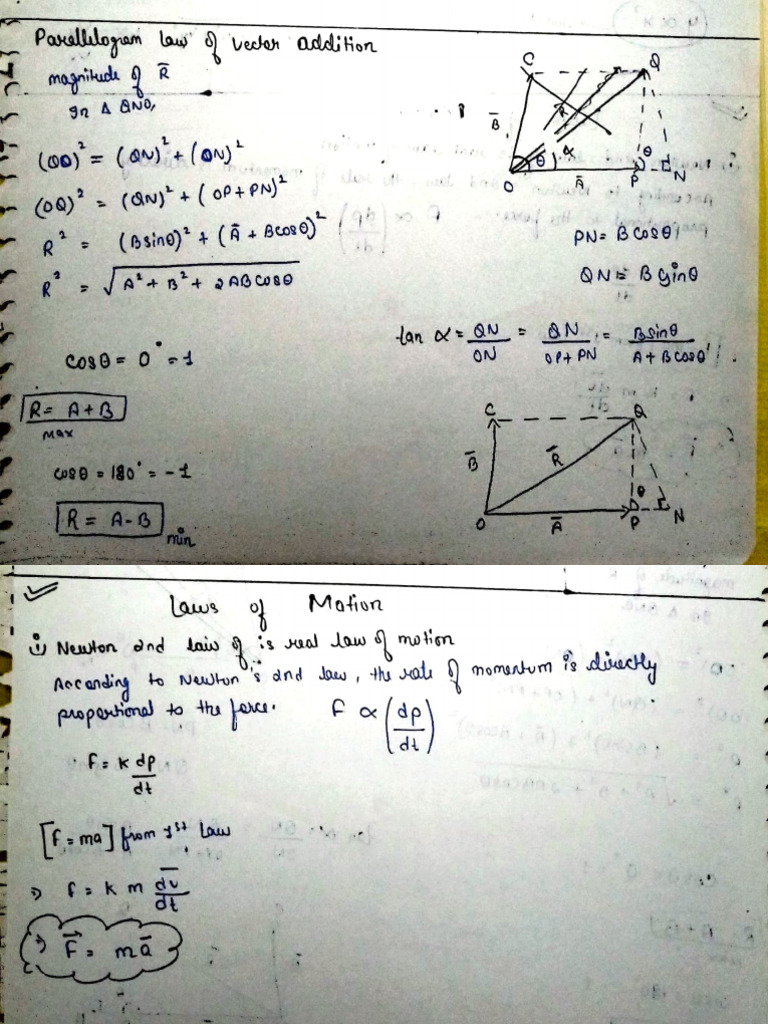 Parallelogram law of vector addition
magnitude of R̄
In Δ QNO,
(OQ)² = (QN)² + (ON)²
(OQ)² = (QN)² + (OP+PN)²
R² = (Bsinθ)² + (Ā + Bcosθ)²
R² = √A² + B² + 2ABcosθ
cosθ = 0° = 1
R = A + B
max
cosθ = 180° = -1
R = A - B
min
C Q
B̄ R
θ α θ
O Ā P N
PN = B cosθ
QN = B sinθ
tan α = QN/ON = QN/OP+PN = Bsinθ/A + Bcosθ
C Q
B̄ R̄
θ
O Ā P N
Laws of Motion
i) Newton 2nd law of is real law of motion
According to Newton's 2nd law, the rate of momentum is directly
proportional to the force. F ∝ (dp/dt)
F = k dp/dt
[F = ma] from 1st law
⇒ F = k m dv̄/dt
⇒ F⃗ = mā